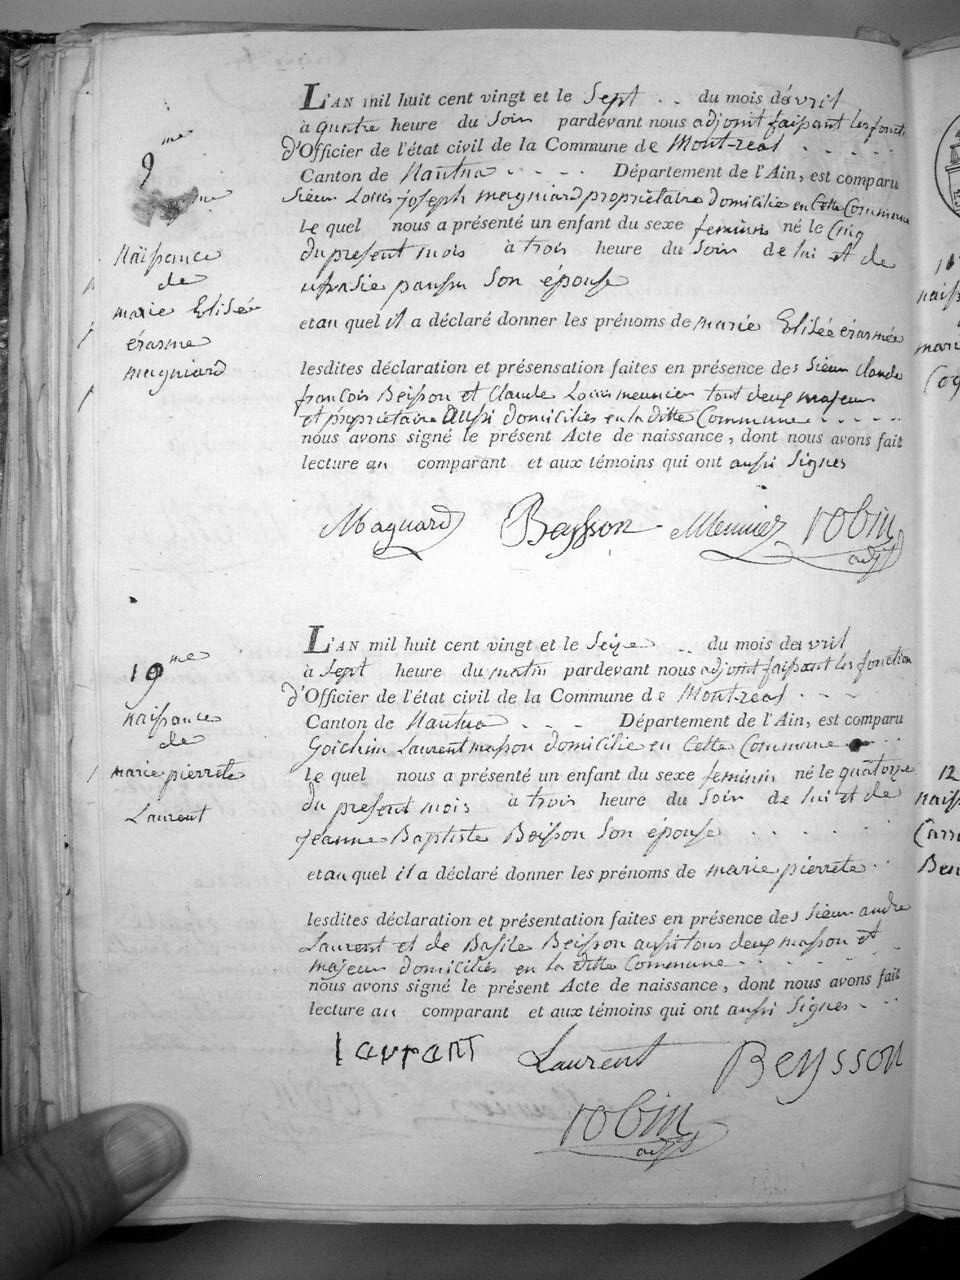 9me
Naissance
de
marie Elisée
érasme
magniard
L'AN mil huit cent vingt et le Sept .. du mois d'avril
à quatre heure du Soir pardevant nous adjoint faisant les fonct
d'Officier de l'état civil de la Commune de Mont-real . . . . .
Canton de Nantua . . . . Département de l'Ain, est comparu
Sieur Louis joseph magniard propriétaire domicilié en Cette Commune
le quel nous a présenté un enfant du sexe feminin né le Cinq
du present mois à trois heure du Soir de lui et de
son épouse
et au quel il a déclaré donner les prénoms de marie Elisée érasmée
lesdites déclaration et présensation faites en présence des Sieur Claude
francois Beisson et Claude Louis meunier tout deux majeur
et propriétaire aussi domiciliés en la ditte Commune . . . . .
nous avons signé le présent Acte de naissance, dont nous avons fait
lecture au comparant et aux témoins qui ont aussi Signes
Magnard Beysson Meunier robin
adjt
10me
naissance
de
marie pierrete
Laurent
L'AN mil huit cent vingt et le Seize .. du mois d'avril
à Sept heure du matin pardevant nous adjoint faisant les fonction
d'Officier de l'état civil de la Commune de Mont-real . . .
Canton de Nantua . . . Département de l'Ain, est comparu
Goichin Laurent masson domicilié en Cette Commune
le quel nous a présenté un enfant du sexe feminin né le quatorze
du present mois à trois heure du Soir de lui et de
jeanne Baptiste Beisson Son épouse . . . . . .
et au quel il a déclaré donner les prénoms de marie pierrete . .
lesdites déclaration et présentation faites en présence des Sieur andre
Laurent et de Basile Beisson aussi tous deux masson et
majeur domiciliés en la ditte Commune . . . . . . .
nous avons signé le présent Acte de naissance, dont nous avons fait
lecture au comparant et aux témoins qui ont aussi Signes . . .
laurant Laurent Beysson
robin
adjt